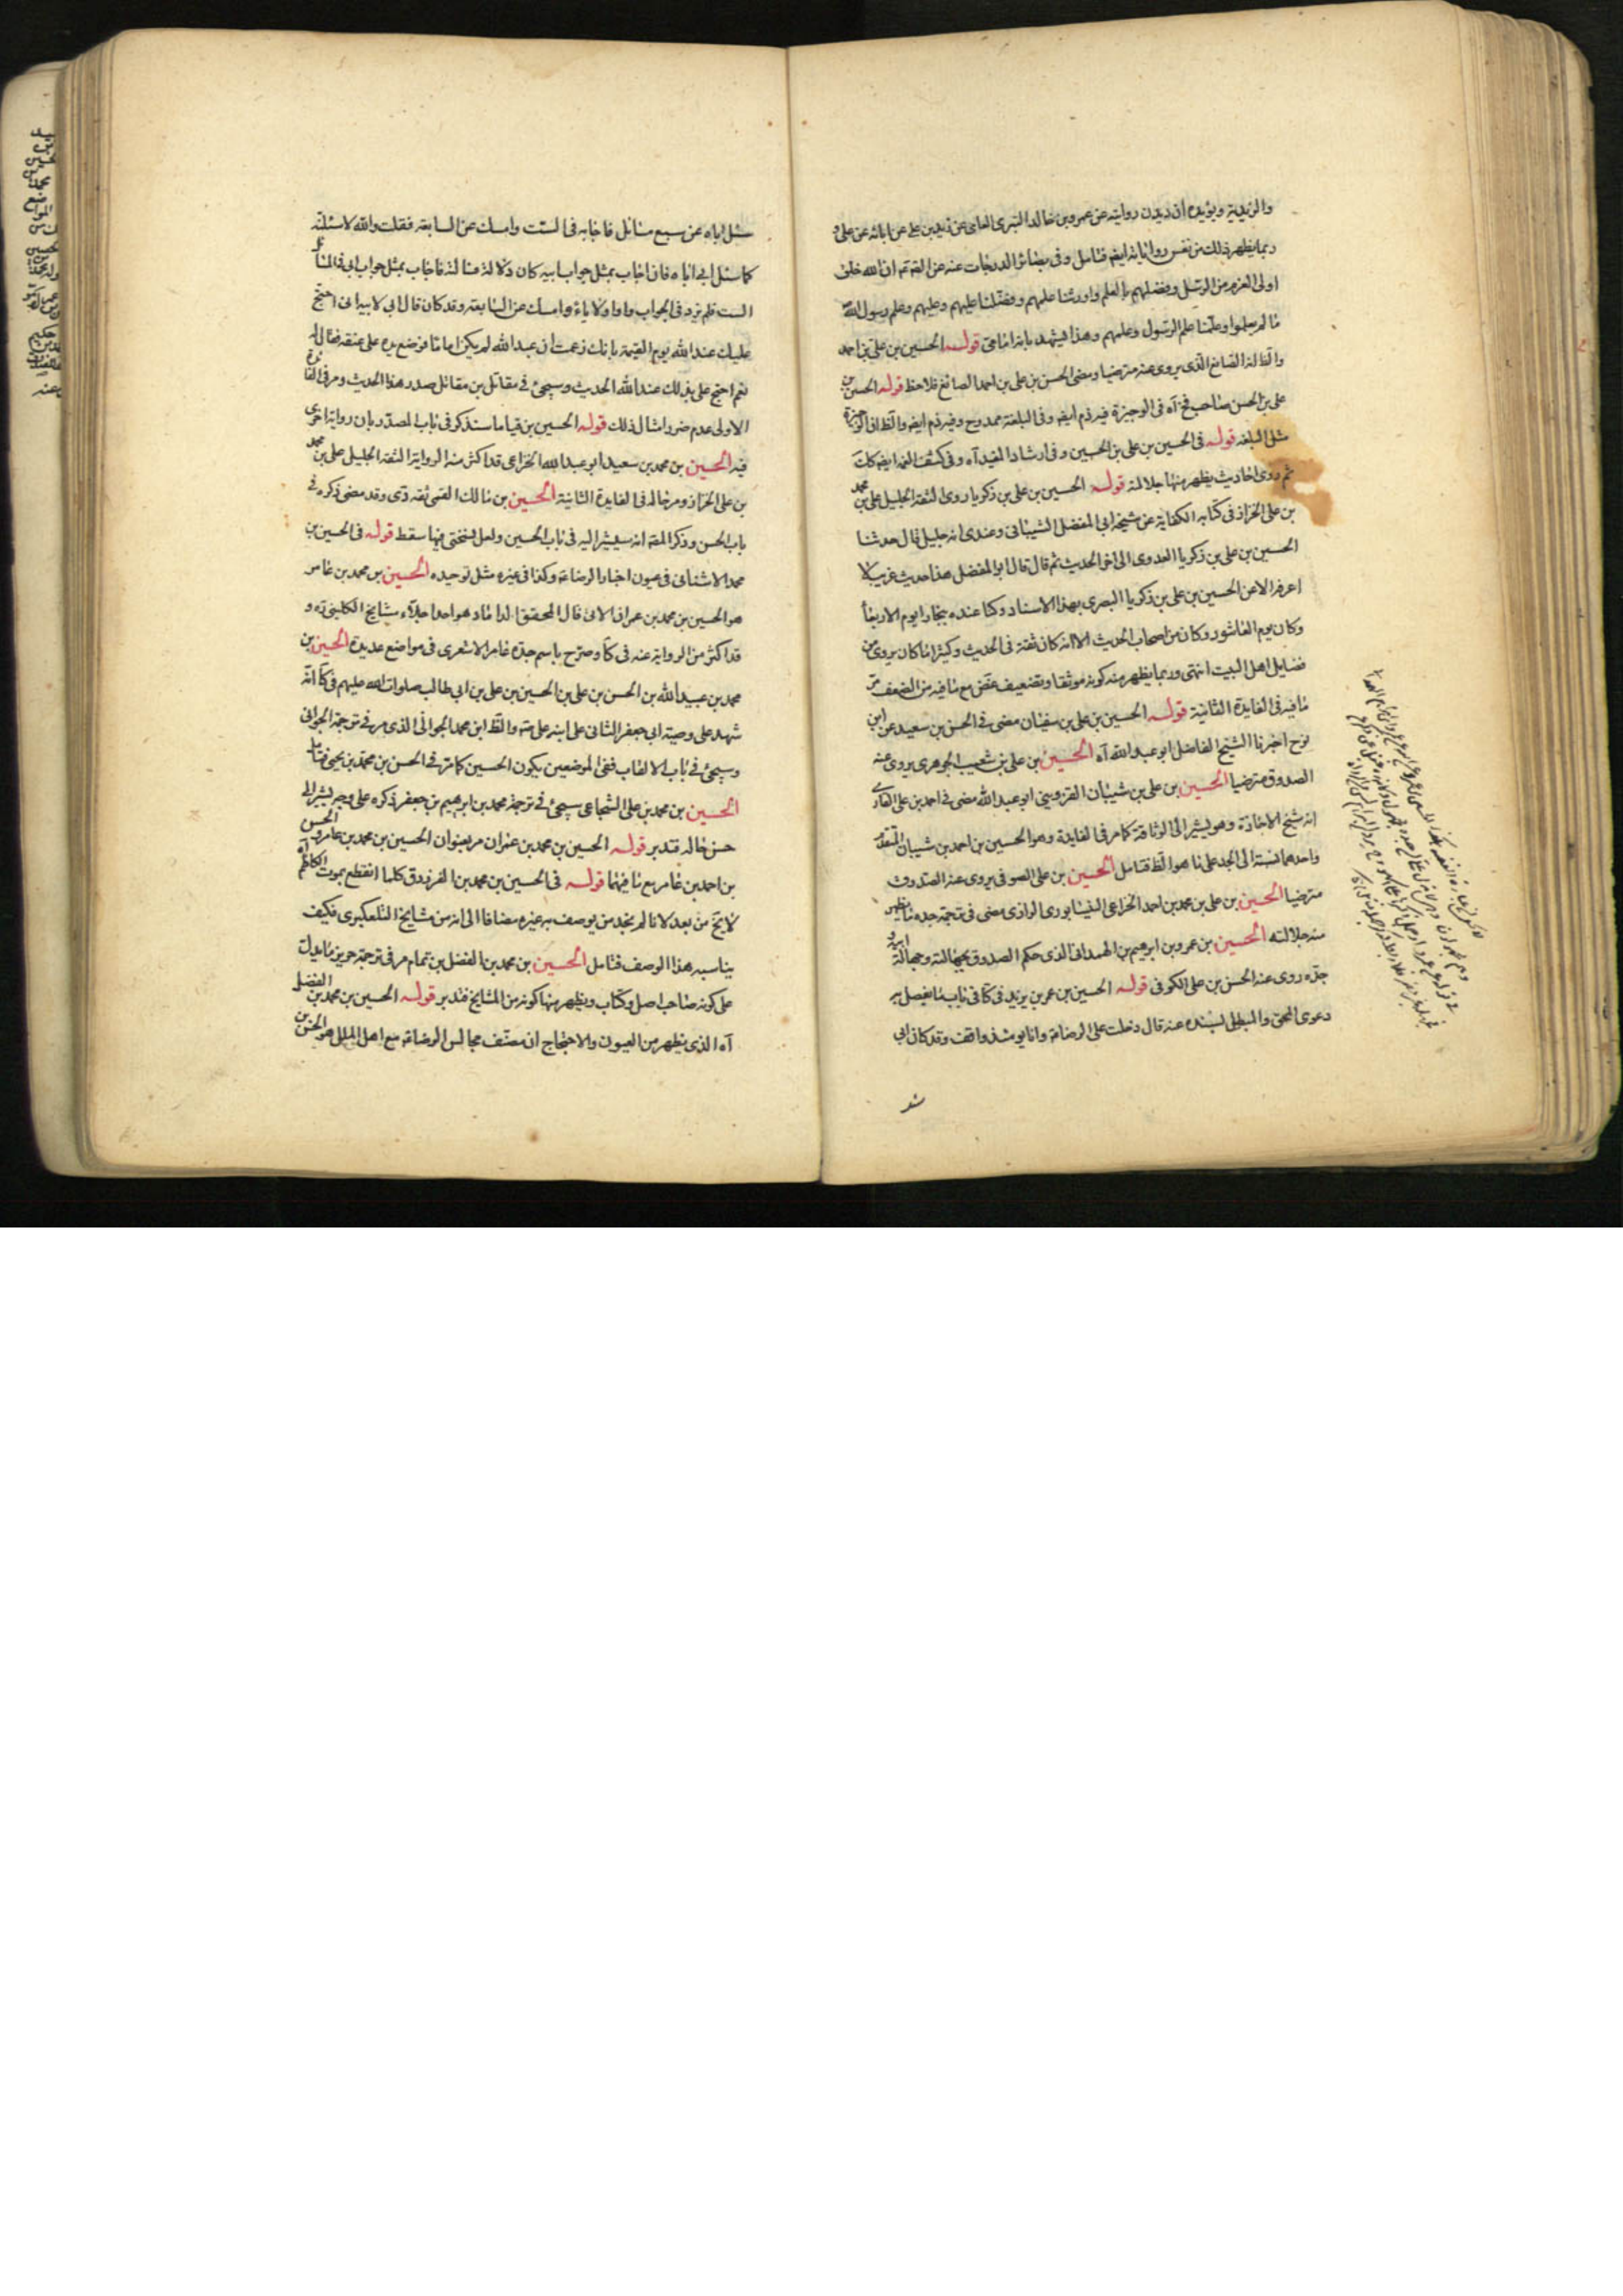 والزيدية ويؤيده ان ديدن روايته عن عمرو بن خالد البترى العامى عن زيد بن على عن ابائه عن على و
ربما يظهر ذلك من نفس رواياته ايضا فتامل وفى بصائر الدرجات عنه عن الصم ان الله خلق
اولى العزم من الرسل وفضلهم بالعلم واورثنا علمهم وفضلنا عليهم وعلم رسول الله
ما لم يعلموا وعلمنا علم الرسول وعلمهم وهذا يشهد بانه امامى قوله الحسين بن على بن احمد
والظ انه الصائغ الذى يروى عنه مترضيا ومضى الحسن بن على بن احمد الصائغ فلاحظ قوله الحسين بن
على بن الحسن صاحب فخ آه فى الوجيزة فيه ذم ايضه وفى البلغة ممدوح وفيه ذم ايضه والظ ان الوجيزة
مثل البلغه قوله فى الحسين بن على بن الحسين وفى ارشاد المفيد آه وفى كشف الغمه ايضه كك
ثم روى احاديث يظهر منها جلالته قوله الحسين بن على بن زكريا روى الثقة الجليل على بن محمد
بن على الخزاز فى كتابه الكفاية عن شيخه ابى المفضل الشيبانى وعندى انه جليل قال حدثنا
الحسين بن على بن زكريا العدوى الى اخر الحديث ثم قال قال ابو المفضل هذا حديث غريب لا
اعرفه الا عن الحسين بن على بن زكريا البصرى بهذا الاسناد وكنا عنده ببخارا يوم الاربعا
وكان يوم العاشور وكان من اصحاب الحديث الا انه كان ثقة فى الحديث وكثيرا ما كان يروى من
فضايل اهل البيت انتهى وربما يظهر منه كونه موثقا وتضعيف غض مع ما فيه من الضعف مر
ما فيه فى الفايدة الثانية قوله الحسين بن على بن سفيان مضى فى الحسن بن سعيد عن ابن
نوح اخبرنا الشيخ الفاضل ابو عبد الله آه الحسين بن على بن شعيب الجوهرى يروى عنه
الصدوق مترضيا الحسين بن على بن شيبان القزوينى ابو عبد الله مضى فى احمد بن على الفائدى
انه شيخ الاجازة وهو يشير الى الوثاقة كما مر فى الفايدة وهو الحسين بن احمد بن شيبان المتقدم
واحدهما نسبة الى الجد على ما هو الظ فتامل الحسين بن على الصوفى يروى عنه الصدوق
مترضيا الحسين بن على بن محمد بن احمد الخزاعى النيشابورى الرازى مضى فى ترجمة جده ما يظهر
منه جلالته الحسين بن عمرو بن ابرهيم بن الهمدانى الذى حكم الصدوق بجهالته وجهالة ابيه و
جده روى عنه الحسن بن على الكوفى قوله الحسين بن عمر بن يزيد فى كا فى باب ما يفصل به
دعوى المحق والمبطل بسنده عنه قال دخلت على الرضاء وانا يومئذ واقف وقد كان ابى
سئل اباه عن سبع مسائل فاجابه فى الست وامسك عن السابعة فقلت والله لاسئلنه
كما سئل ابى اباه فان اجاب بمثل جواب ابيه كان دلالة فسالته فاجاب بمثل جواب ابى فى المسائل
الست فلم يزد فى الجواب واوا ولا ياء وامسك عن السابعة وقد كان قال ابى لابيه انى احتج
عليك عند الله يوم القيمة بانك زعمت ان عبد الله لم يكن اماما فوضع يده على عنقه فقال له
نعم احتج على بذلك عند الله الحديث وسيجئ فى مقاتل بن مقاتل صدر هذا الحديث ومر فى الفايدة
الاولى عدم ضرر امثال ذلك قوله الحسين بن قياما سنذكر فى باب المصدر بابن رواية اخرى
فيه الحسين بن محمد بن سعيد ابو عبد الله الخزاعى قد اكثر منه الرواية الثقة الجليل على بن محمد
بن على الخزاز ومر حاله فى الفايدة الثانية الحسين بن مالك القمى ثقه دى وقد مضى ذكره فى
باب الحسن وذكر المصه انه سيشير اليه فى باب الحسين ولعل نسختى فيها سقط قوله فى الحسين بن
محمد الاشنانى فى عيون اخبار الرضاء وكذا فى غيره مثل توحيده الحسين بن محمد بن عامر
هو الحسين بن محمد بن عمران الاتى قال المحقق الداماد هو احد اجلاء مشايخ الكلينى ره و
قد اكثر من الرواية عنه فى كا وصرح باسم جده عامر الاشعرى فى مواضع عديدة الحسين بن
محمد بن عبيد الله بن الحسن بن على بن الحسين بن على بن ابى طالب صلوات الله عليهم فى كا انه
شهد على وصية ابى جعفر الثانى على ابنه على عم والظ ابن محمد الجوانى الذى مر فى ترجمة الجوانى
وسيجئ فى باب الالقاب ففى الموضعين يكون الحسين كما مر فى الحسن بن محمد بن يحيى فتامل
الحسين بن محمد بن على الشجاعى سيجئ فى ترجمة محمد بن ابرهيم بن جعفر ذكره على وجه يشير الى
حسن حاله فتدبر قوله الحسين بن محمد بن عمران مر بعنوان الحسين بن محمد بن عامر والحسن
بن احمد بن عامر مع ما فيهما قوله فى الحسين بن محمد بن الفرزدق كلما انقطع بموت الكاظم آه
لا يخ من بعد لانا لم نجد من يوصف به غيره مضافا الى انه من مشايخ التلعكبرى فكيف
يناسبه هذا الوصف فتامل الحسين بن محمد بن الفضل بن تمام مر فى ترجمة حريز ما يدل
على كونه صاحب اصل وكتاب ويظهر منها كونه من المشايخ فتدبر قوله الحسين بن محمد بن الفضل
آه الذى يظهر من العيون والاحتجاج ان مصنف مجالس الرضاء مع اهل الملل هو الحسن بن